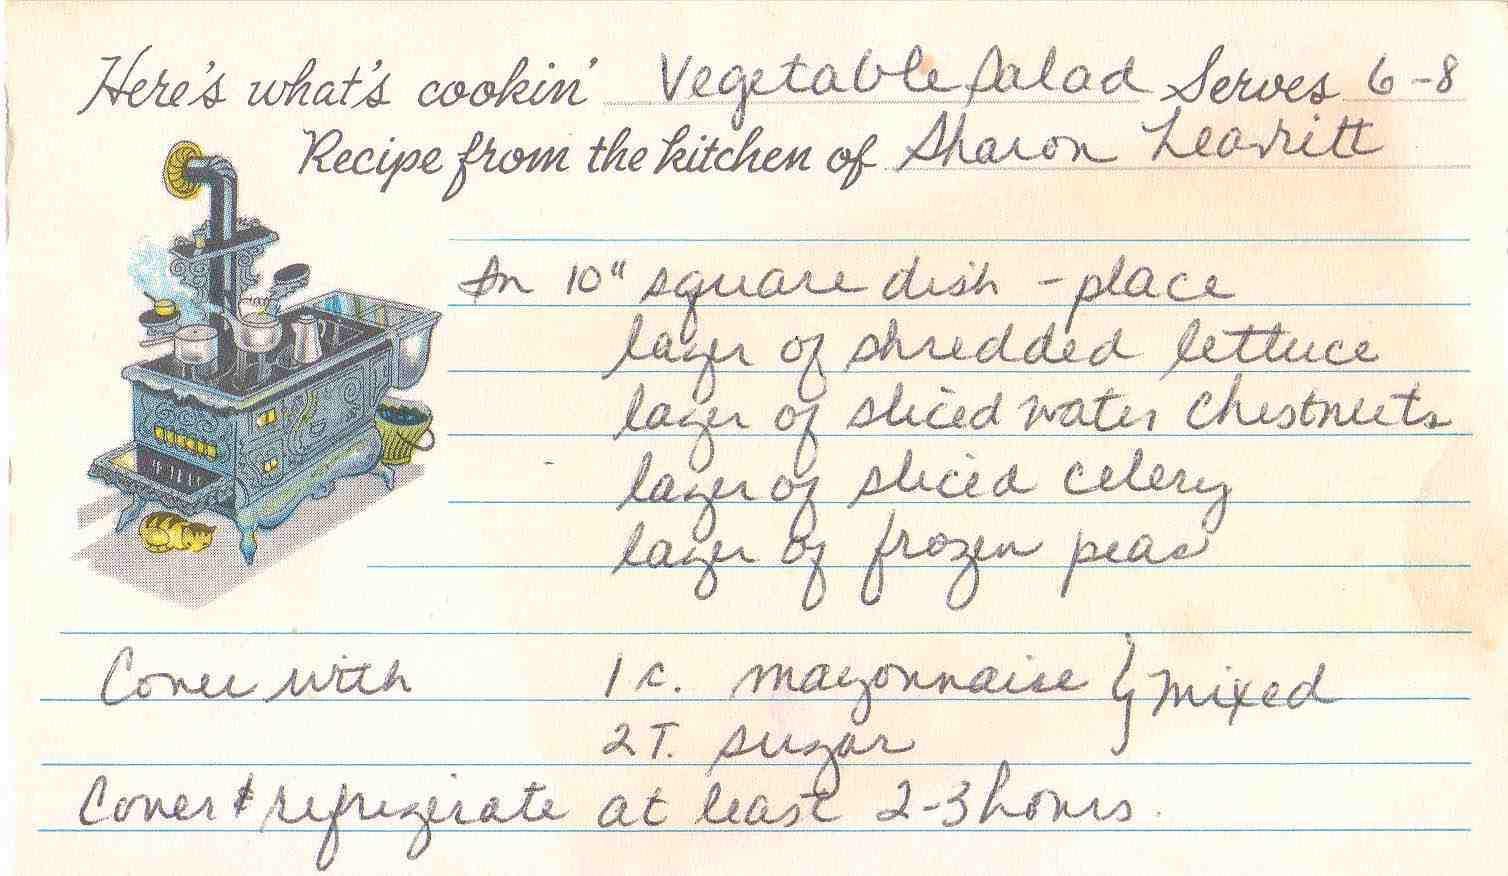 Here's what's cookin' Vegetable Salad Serves 6-8
Recipe from the kitchen of Sharon Leavitt
In 10" square dish - place
layer of shredded lettuce
layer of sliced water chestnuts
layer of sliced celery
layer of frozen peas
Cover with 1 c. mayonnaise } mixed
2 T. sugar
Cover & refrigerate at least 2-3 hours.